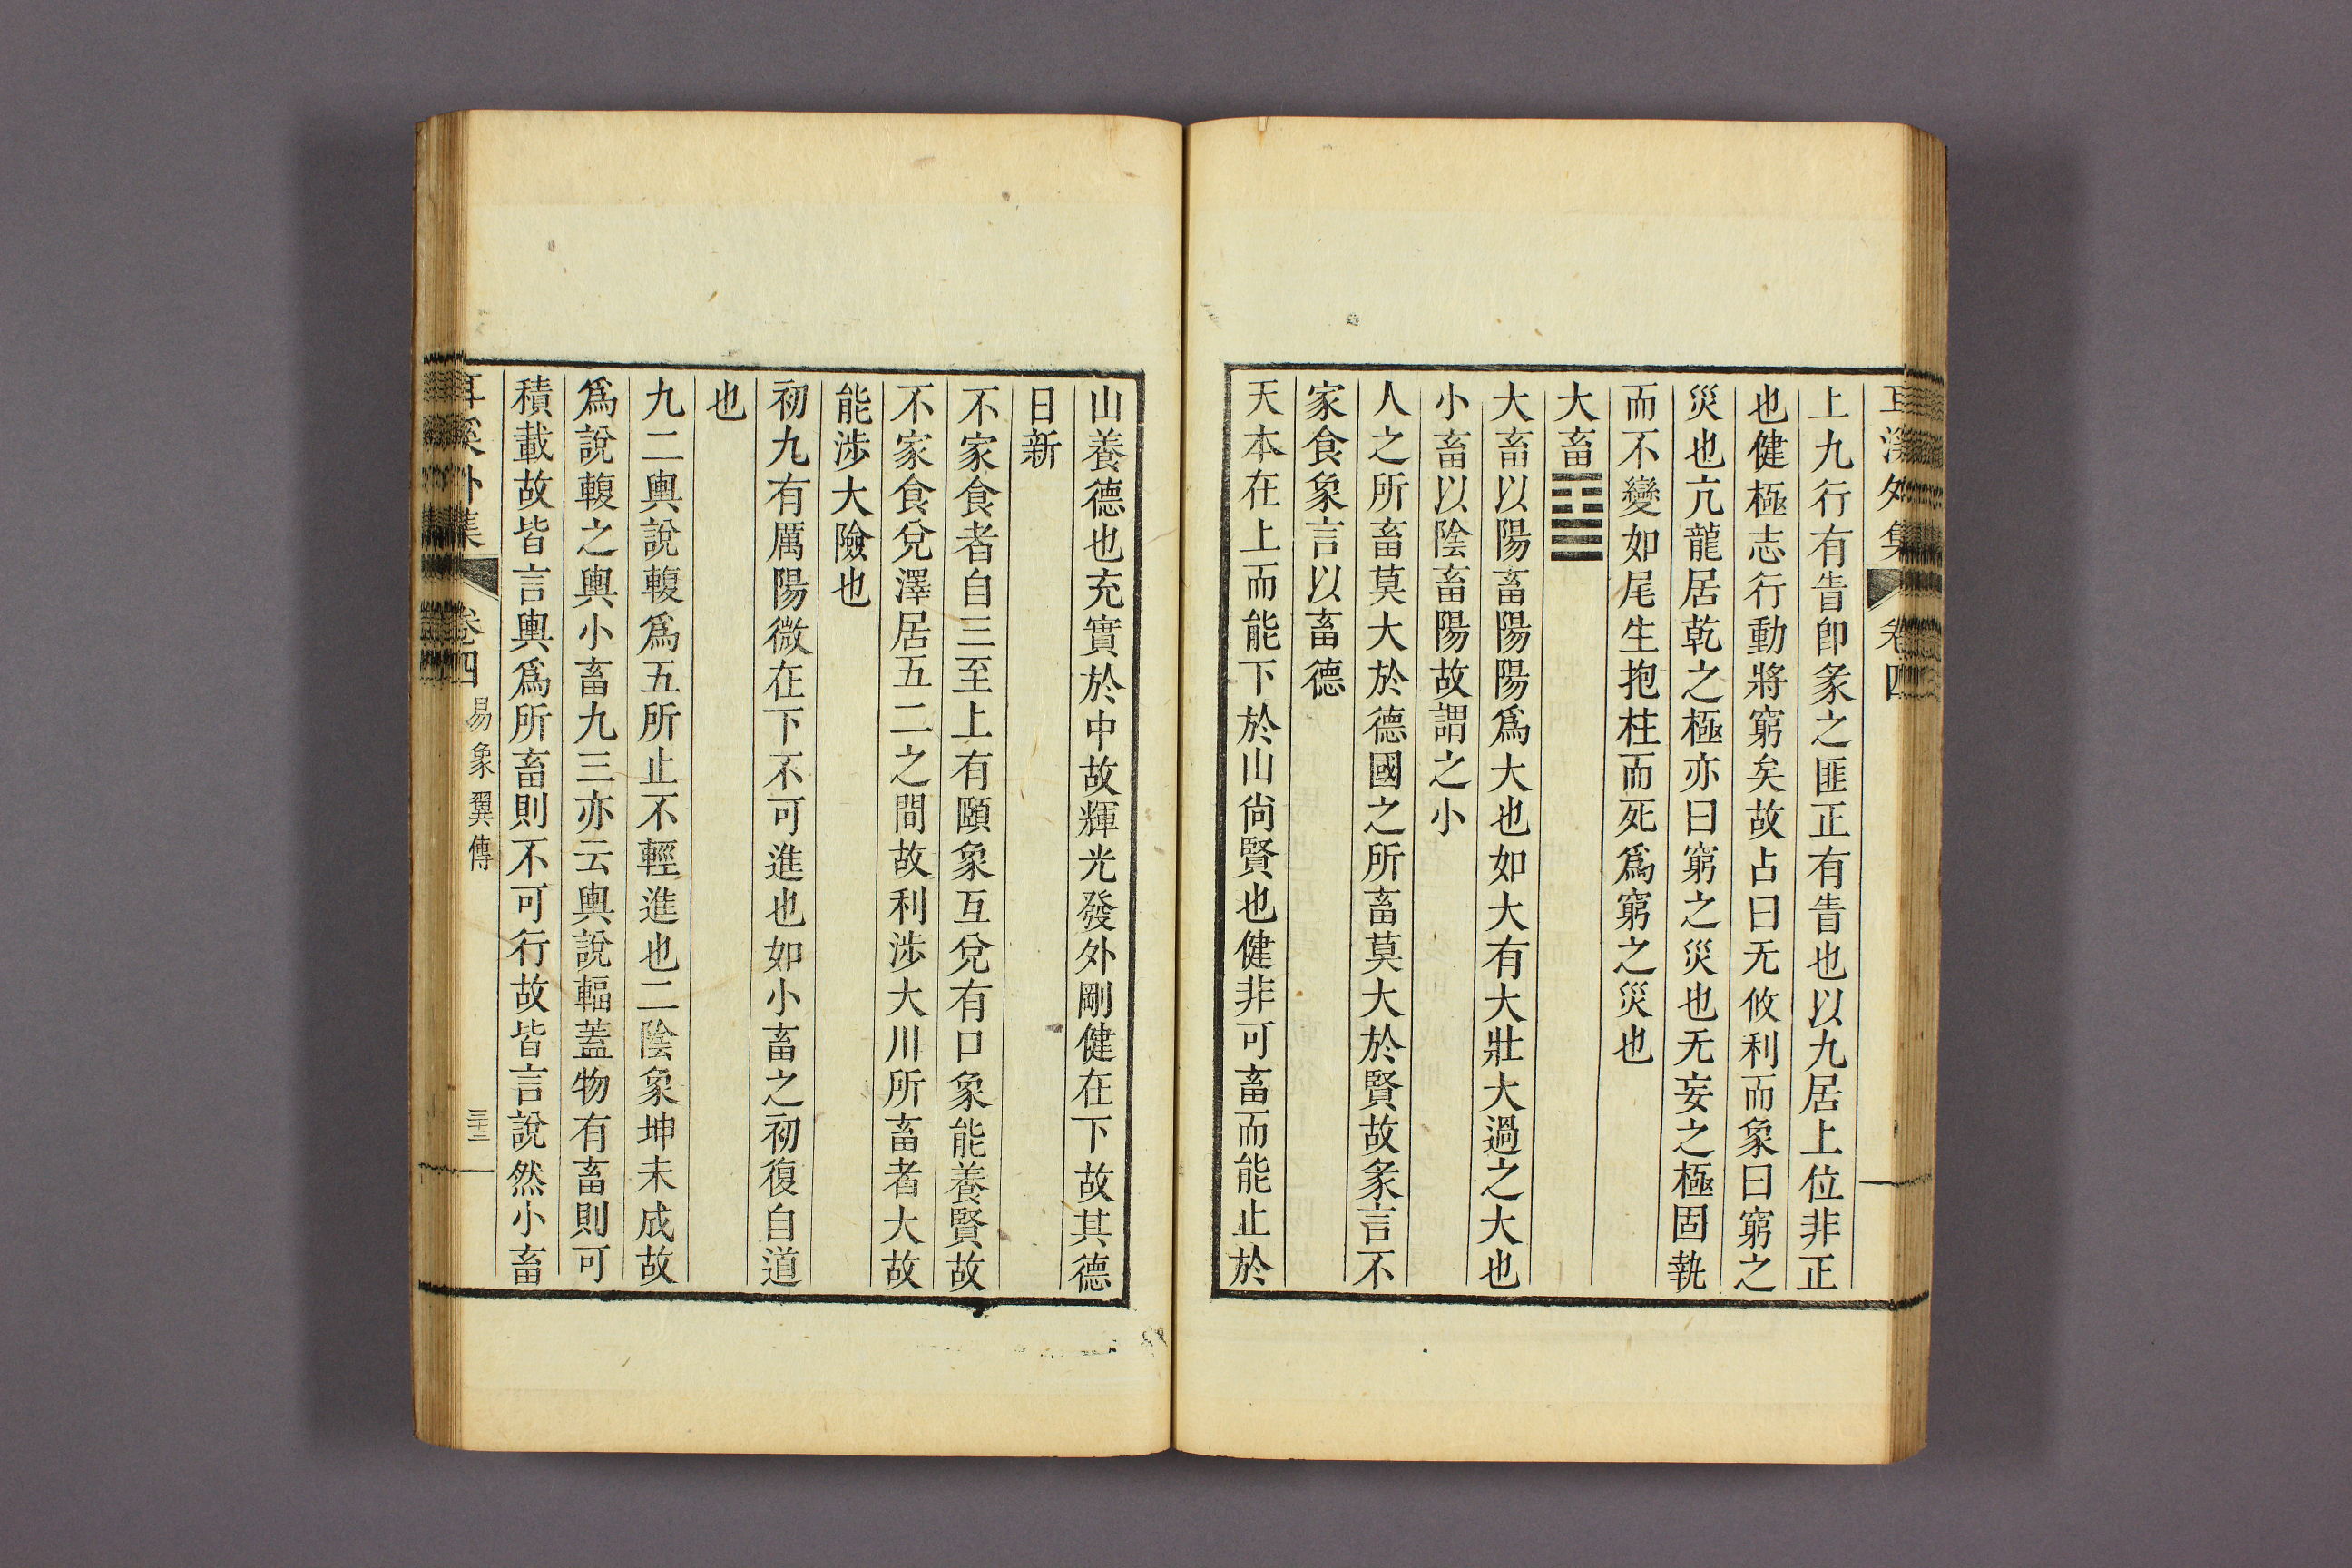 耳溪外集　卷四
上九行有眚卽彖之匪正有眚也以九居上位非正
也健極志行動將窮矣故占曰无攸利而象曰窮之
災也亢龍居乾之極亦曰窮之災也无妄之極固執
而不變如尾生抱柱而死爲窮之災也
大畜䷙
大畜以陽畜陽陽爲大也如大有大壯大過之大也
小畜以陰畜陽故謂之小
人之所畜莫大於德國之所畜莫大於賢故彖言不
家食象言以畜德
天本在上而能下於山尙賢也健非可畜而能止於
山養德也充實於中故輝光發外剛健在下故其德
日新
不家食者自三至上有頤象互兌有口象能養賢故
不家食兌澤居五二之間故利涉大川所畜者大故
能涉大險也
初九有厲陽微在下不可進也如小畜之初復自道
也
九二輿說輹爲五所止不輕進也二陰象坤未成故
爲說輹之輿小畜九三亦云輿說輻蓋物有畜則可
積載故皆言輿爲所畜則不可行故皆言說然小畜
耳溪外集　卷四　易象翼傳　三十三